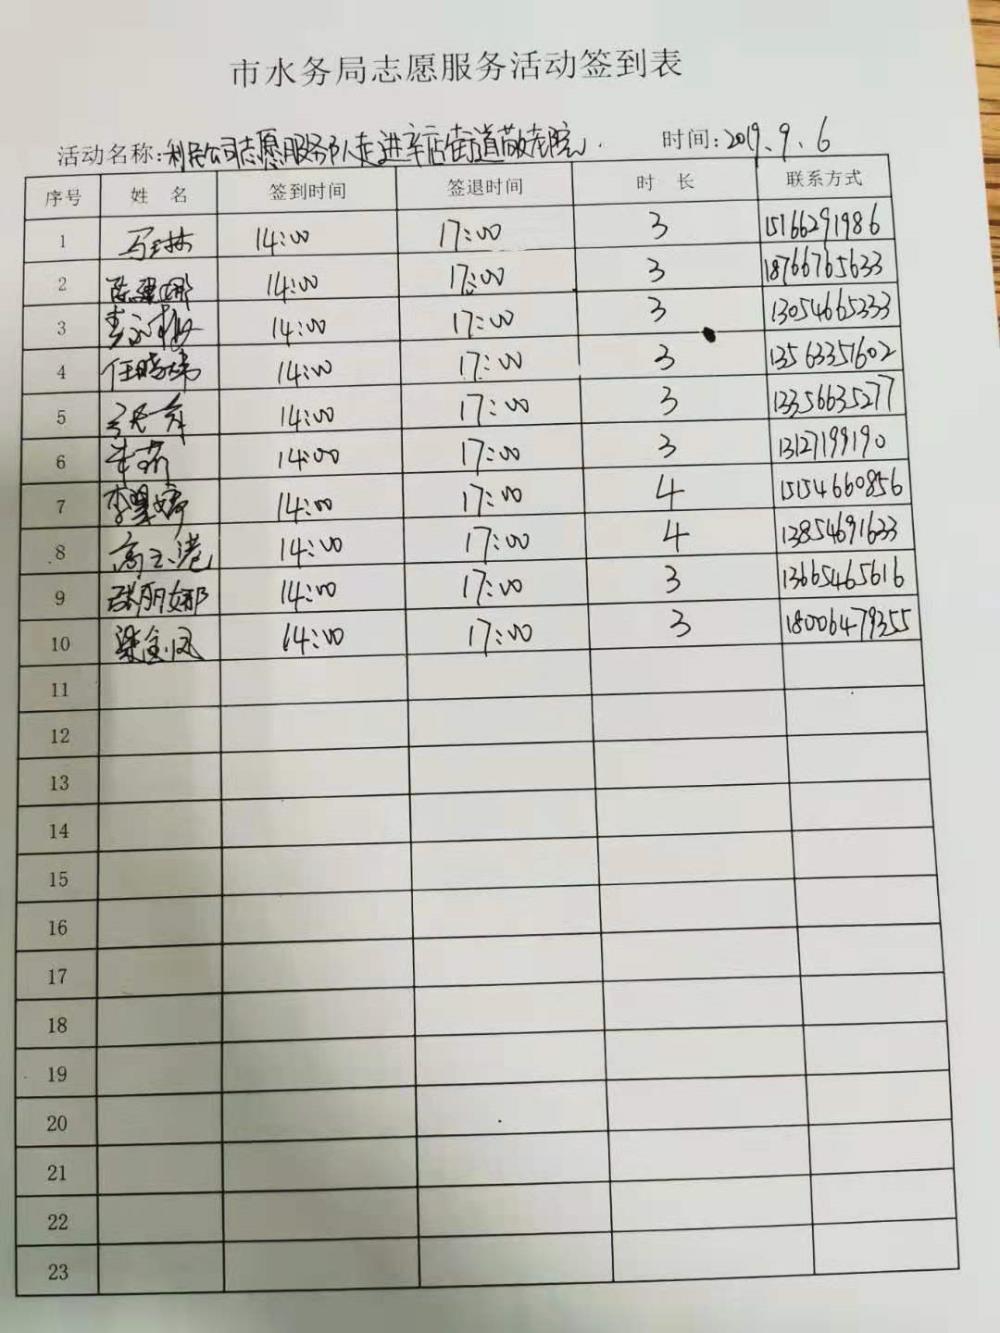 市水务局志愿服务活动签到表
活动名称:利民公司志愿服务队走进辛店街道敬老院. 时间:2019.9.6
序号 姓 名 签到时间 签退时间 时 长 联系方式
1 14:00 17:00 3 15166291986
2 14:00 17:00 3 18766765633
3 14:00 17:00 3 13054665333
4 任晓娣 14:00 17:00 3 13563351602
5 14:00 17:00 3 13356635277
6 牛莉 14:00 17:00 3 13127199190
7 14:00 17:00 4 15154660856
8 高玉港 14:00 17:00 4 13854691633
9 张丽娜 14:00 17:00 3 13665465616
10 梁金凤 14:00 17:00 3 18006479355
11
12
13
14
15
16
17
18
19
20
21
22
23